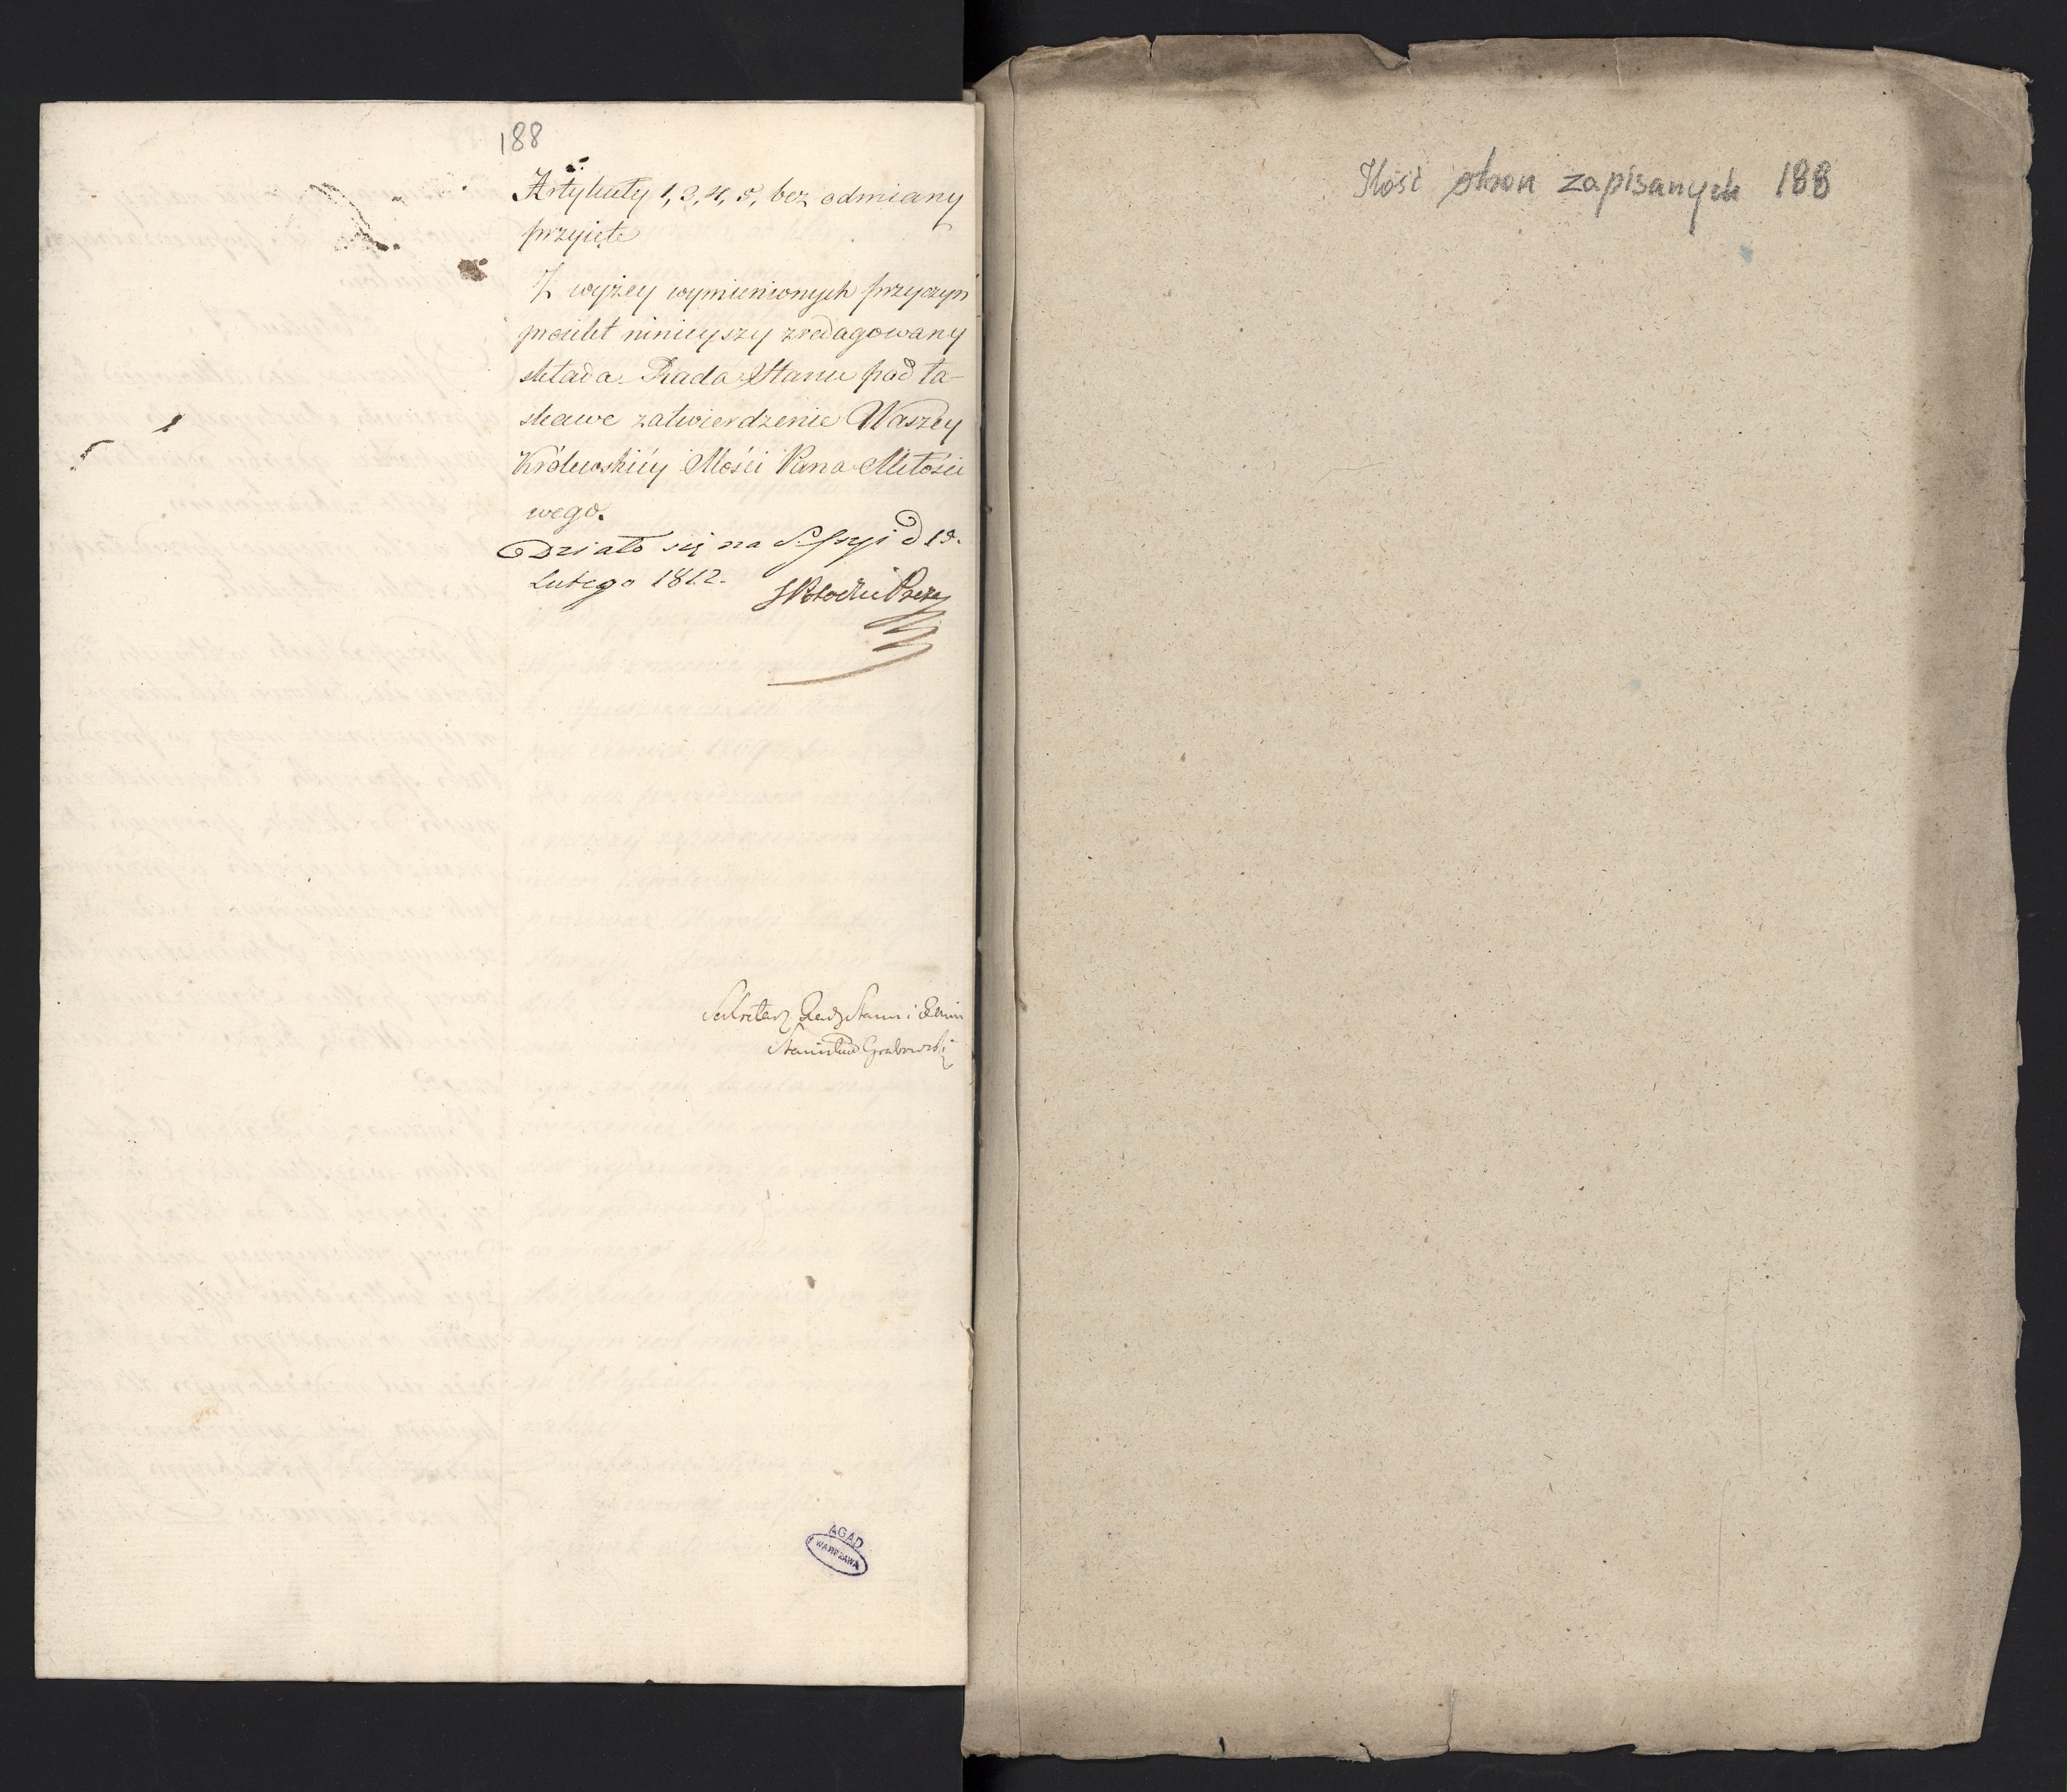 188
Artykuły 1, 3, 4, 5, bez odmiany
przyięte
Z wyżey wymienionych przyczyn
proiekt ninieyszy zredagowany
składa Rada Stanu pod ła-
skawe zatwierdzenie Waszey
Królewskiéy Mości Pana Miłości
wego.
Działo się na Sessyi d 19.
Lutego 1812.
Sekretarz Rady Stanu i
Stanisław Grabowski
AGAD
WARSZAWA
Ilość stron zapisanych 188